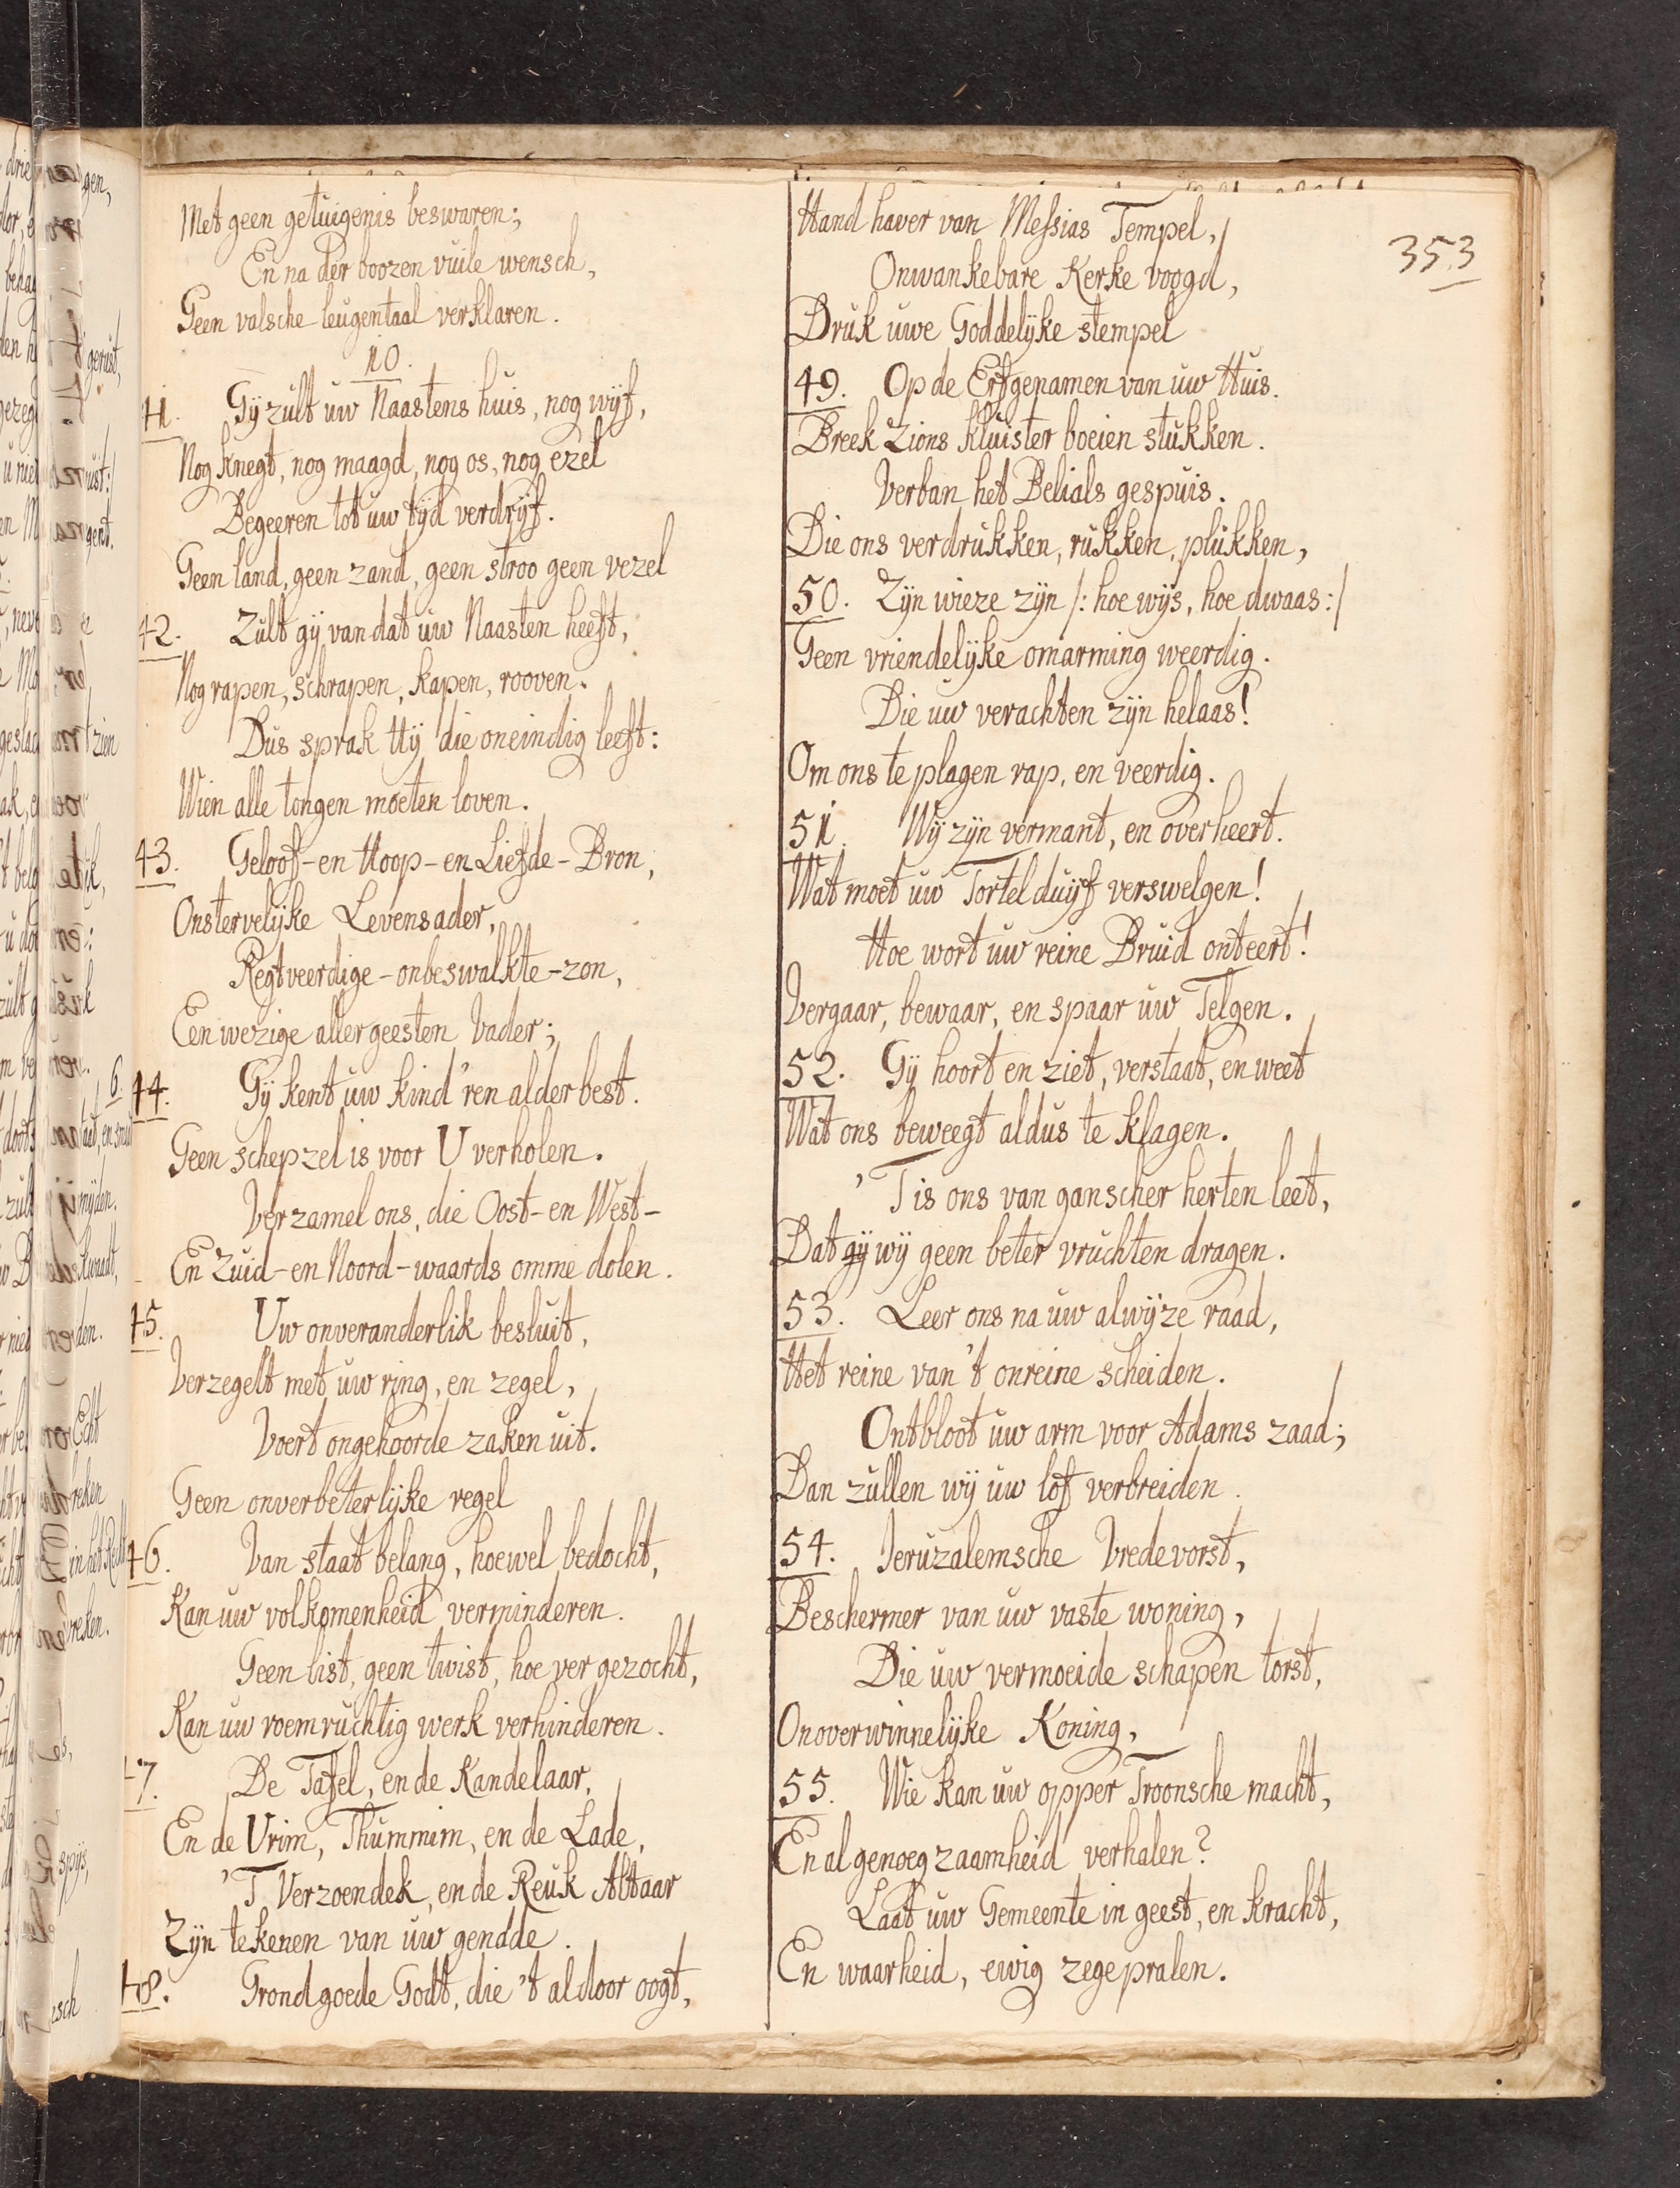 353
Met geen getuigenis beswaren;
En na der boozen vuile wensch,
Geen valsche leugentaal verklaren.
10.
41. Gij zult uw Naastens huis, nog wijf,
Nog knegt, nog maagd, nog os, nog ezel
Begeeren tot uw tijd verdrijf.
Geen land, geen zand, geen stroo geen vezel
42. Zult gij van dat uw Naasten heeft,
Nog rapen, schrapen, kapen, rooven.
Dus sprak Hij die oneindig leeft:
Wien alle tongen moeten loven.
43. Geloof-en Hoop-en Liefde-Bron,
Onstervelijke Levensader,
Regtveerdige-onbeswalkte-zon,
Een wezige aller geesten Vader;
44. Gij kent uw kind'ren alderbest.
Geen schepzel is voor U verholen.
Verzamel ons, die Oost-en West-
En Zuid-en Noord-waards omme dolen.
45. Uw onveranderlik besluit,
Verzegelt met uw ring, en zegel,
Voert ongehoorde zaken uit.
Geen onverbeterlijke regel
46. Van staat belang, hoewel bedocht,
Kan uw volkomenheid verminderen.
Geen list, geen twist, hoe ver gezocht,
Kan uw roemruchtig werk verhinderen.
47. De Tafel, en de Kandelaar,
En de Urim, Thummim, en de Lade,
'T Verzoendek, en de Reuk Altaar
Zijn tekenen van uw genade.
48. Grondgoede Godt, die 't al door oogt,
Hand haver van Messias Tempel,
Onwankebare Kerke voogd,
Druk uwe Goddelijke stempel
49. Op de Erfgenamen van uw Huis.
Breek Zions kluister boeien stukken.
Verban het Belials gespuis.
Die ons verdrukken, rukken, plukken,
50. Zijn wieze zijn /: hoe wijs, hoe dwaas:/
Geen vriendelijke omarming weerdig.
Die uw verachten zijn helaas!
Om ons te plagen rap, en veerdig.
51. Wij zijn vermant, en overheert.
Wat moet uw Tortelduijf verswelgen!
Hoe wort uw reine Bruid onteert!
Vergaar, bewaar, en spaar uw Telgen.
52. Gij hoort en ziet, verstaat, en weet
Wat ons beweegt aldus te klagen.
'T is ons van ganscher herten leet,
Dat gij wij geen beter vruchten dragen.
53. Leer ons na uw alwijze raad,
Het reine van 't onreine scheiden.
Ontbloot uw arm voor Adams zaad;
Dan zullen wij uw lof verbreiden.
54. Jeruzalemsche Vredevorst,
Beschermer van uw vaste woning,
Die uw vermoeide schapen torst,
Onoverwinnelijke Koning,
55. Wie kan uw opper Troonsche macht,
En algenoegzaamheid verhalen?
Laat uw Gemeente in geest, en kracht,
En waarheid, ewig zegepralen.